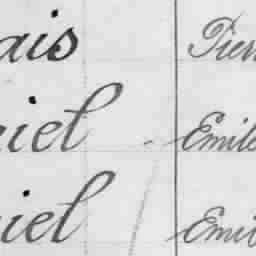 ais Pierr
iel Emile
iel Emil